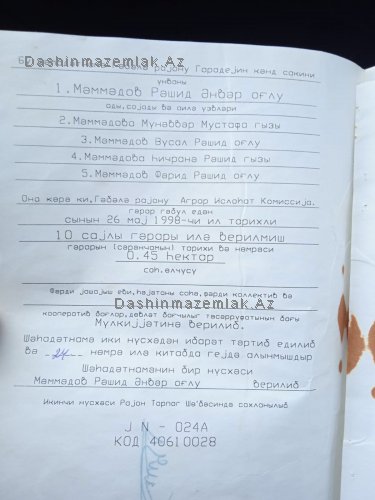 Dashinmazemlak.Az
Гәбәлә рајону Гарадејин кәнд сакини
унваны
1. Мәммәдов Рәшид Әнвәр оғлу
ады, сојады вә аилә үзвләри
2. Мәммәдова Мунәввәр Мустафа гызы
3. Мәммәдов Вусал Рәшид оғлу
4. Мәммәдова Һичронә Рәшид гызы
5. Мәммәдов Фәрид Рәшид оғлу
Она ҝөрә ки, Гәбәлә рајону Аграр Ислоһат Комиссија-
гәрар гәбул едән
сынын 26 мај 1998-чи ил тарихли
10 сајлы гәрары илә верилмиш
гәрарын (сәрәнчамын) тарихи вә нөмрәси
0.45 һектар
саһ.өлчүсү
Фәрди јашајыш еви, һәјәтјаны саһә, фәрди коллектив вә
Dashinmazemlak.Az
кооператив бағлар, дөвләт бағчылыг тәсәррүфатынын бағы
Мүлкијјәтинә верилиб.
Шәһадәтнамә ики нүсхәдән ибарәт тәртиб едилиб
вә 24 нөмрә илә китабда гејдә алынмышдыр
Шәһадәтнамәнин бир нүсхәси
Мәммәдов Рәшид Әнвәр оғлу верилиб
Икинчи нүсхәси Рајон Торпаг Шө'бәсиндә сахланылыб
J N - 024A
КОД 40610028